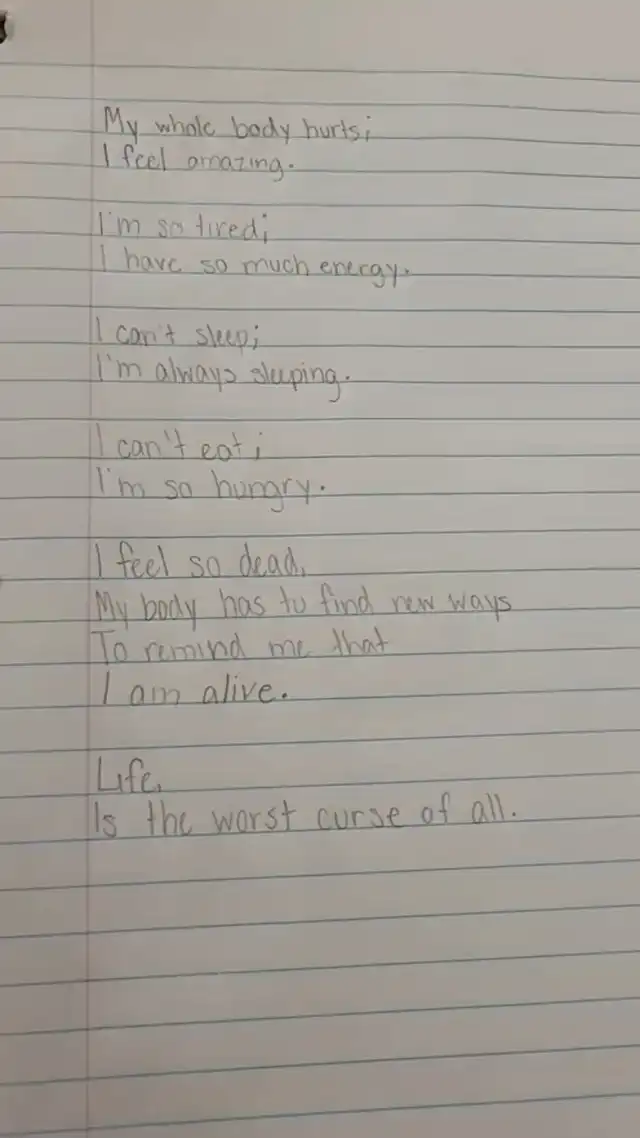 My whole body hurts;
I feel amazing.
I'm so tired;
I have so much energy.
I can't sleep;
I'm always sleeping.
I can't eat;
I'm so hungry.
I feel so dead,
My body has to find new ways
To remind me that
I am alive.
Life,
Is the worst curse of all.